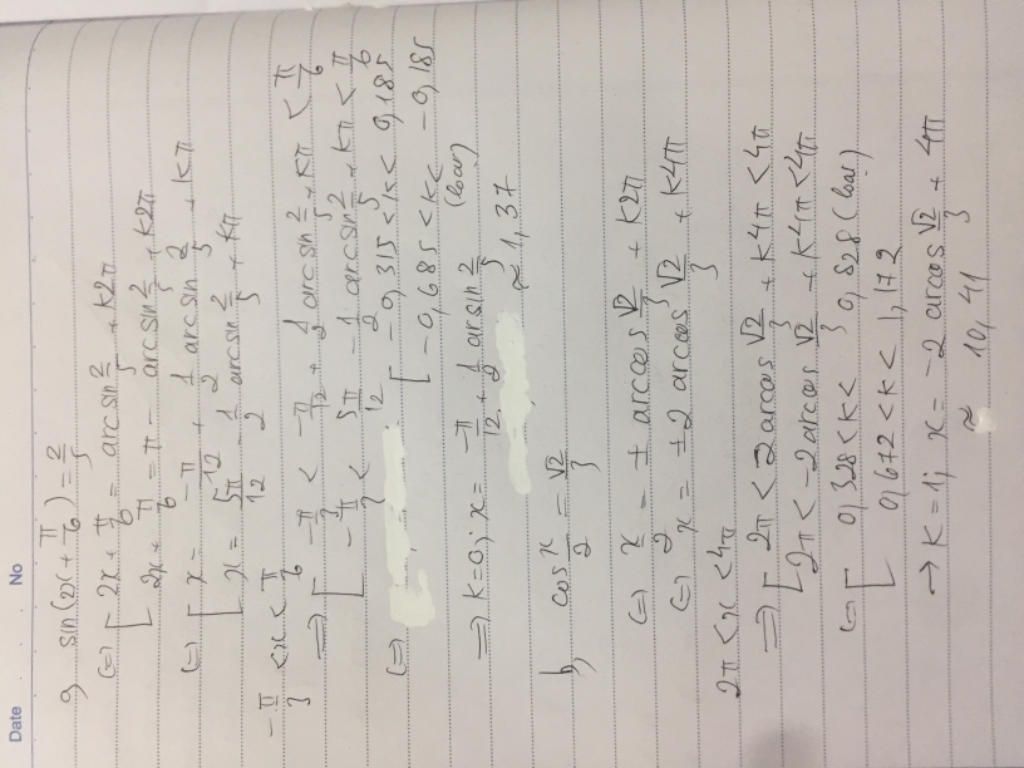 Date No
a, sin(2x + π/6) = 2/5
(=) [ 2x + π/6 = arcsin 2/5 + k2π
2x + π/6 = π - arcsin 2/5 + k2π
(=) [ x = -π/12 + 1/2 arcsin 2/5 + kπ
x = 5π/12 - 1/2 arcsin 2/5 + kπ
-π/3 < x < π/6
=> [ -π/3 < -π/12 + 1/2 arcsin 2/5 + kπ < π/6
-π/3 < 5π/12 - 1/2 arcsin 2/5 + kπ < π/6
(=) [ -0,315 < k < 0,185
-0,685 < k < -0,185 (loại)
=> k = 0; x = -π/12 + 1/2 arcsin 2/5
≈ 1,37
b, cos x/2 = √2/3
(=) x/2 = ± arccos √2/3 + k2π
(=) x = ±2 arccos √2/3 + k4π
2π < x < 4π
=> [ 2π < 2 arccos √2/3 + k4π < 4π
2π < -2 arccos √2/3 + k4π < 4π
(=) [ 0,328 < k < 0,828 (loại)
0,672 < k < 1,172
→ k = 1; x = -2 arccos √2/3 + 4π
≈ 10,41